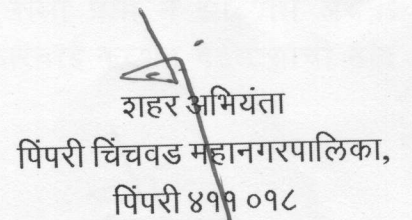 शहर अभियंता
पिंपरी चिंचवड महानगरपालिका,
पिंपरी ४११ ०१८